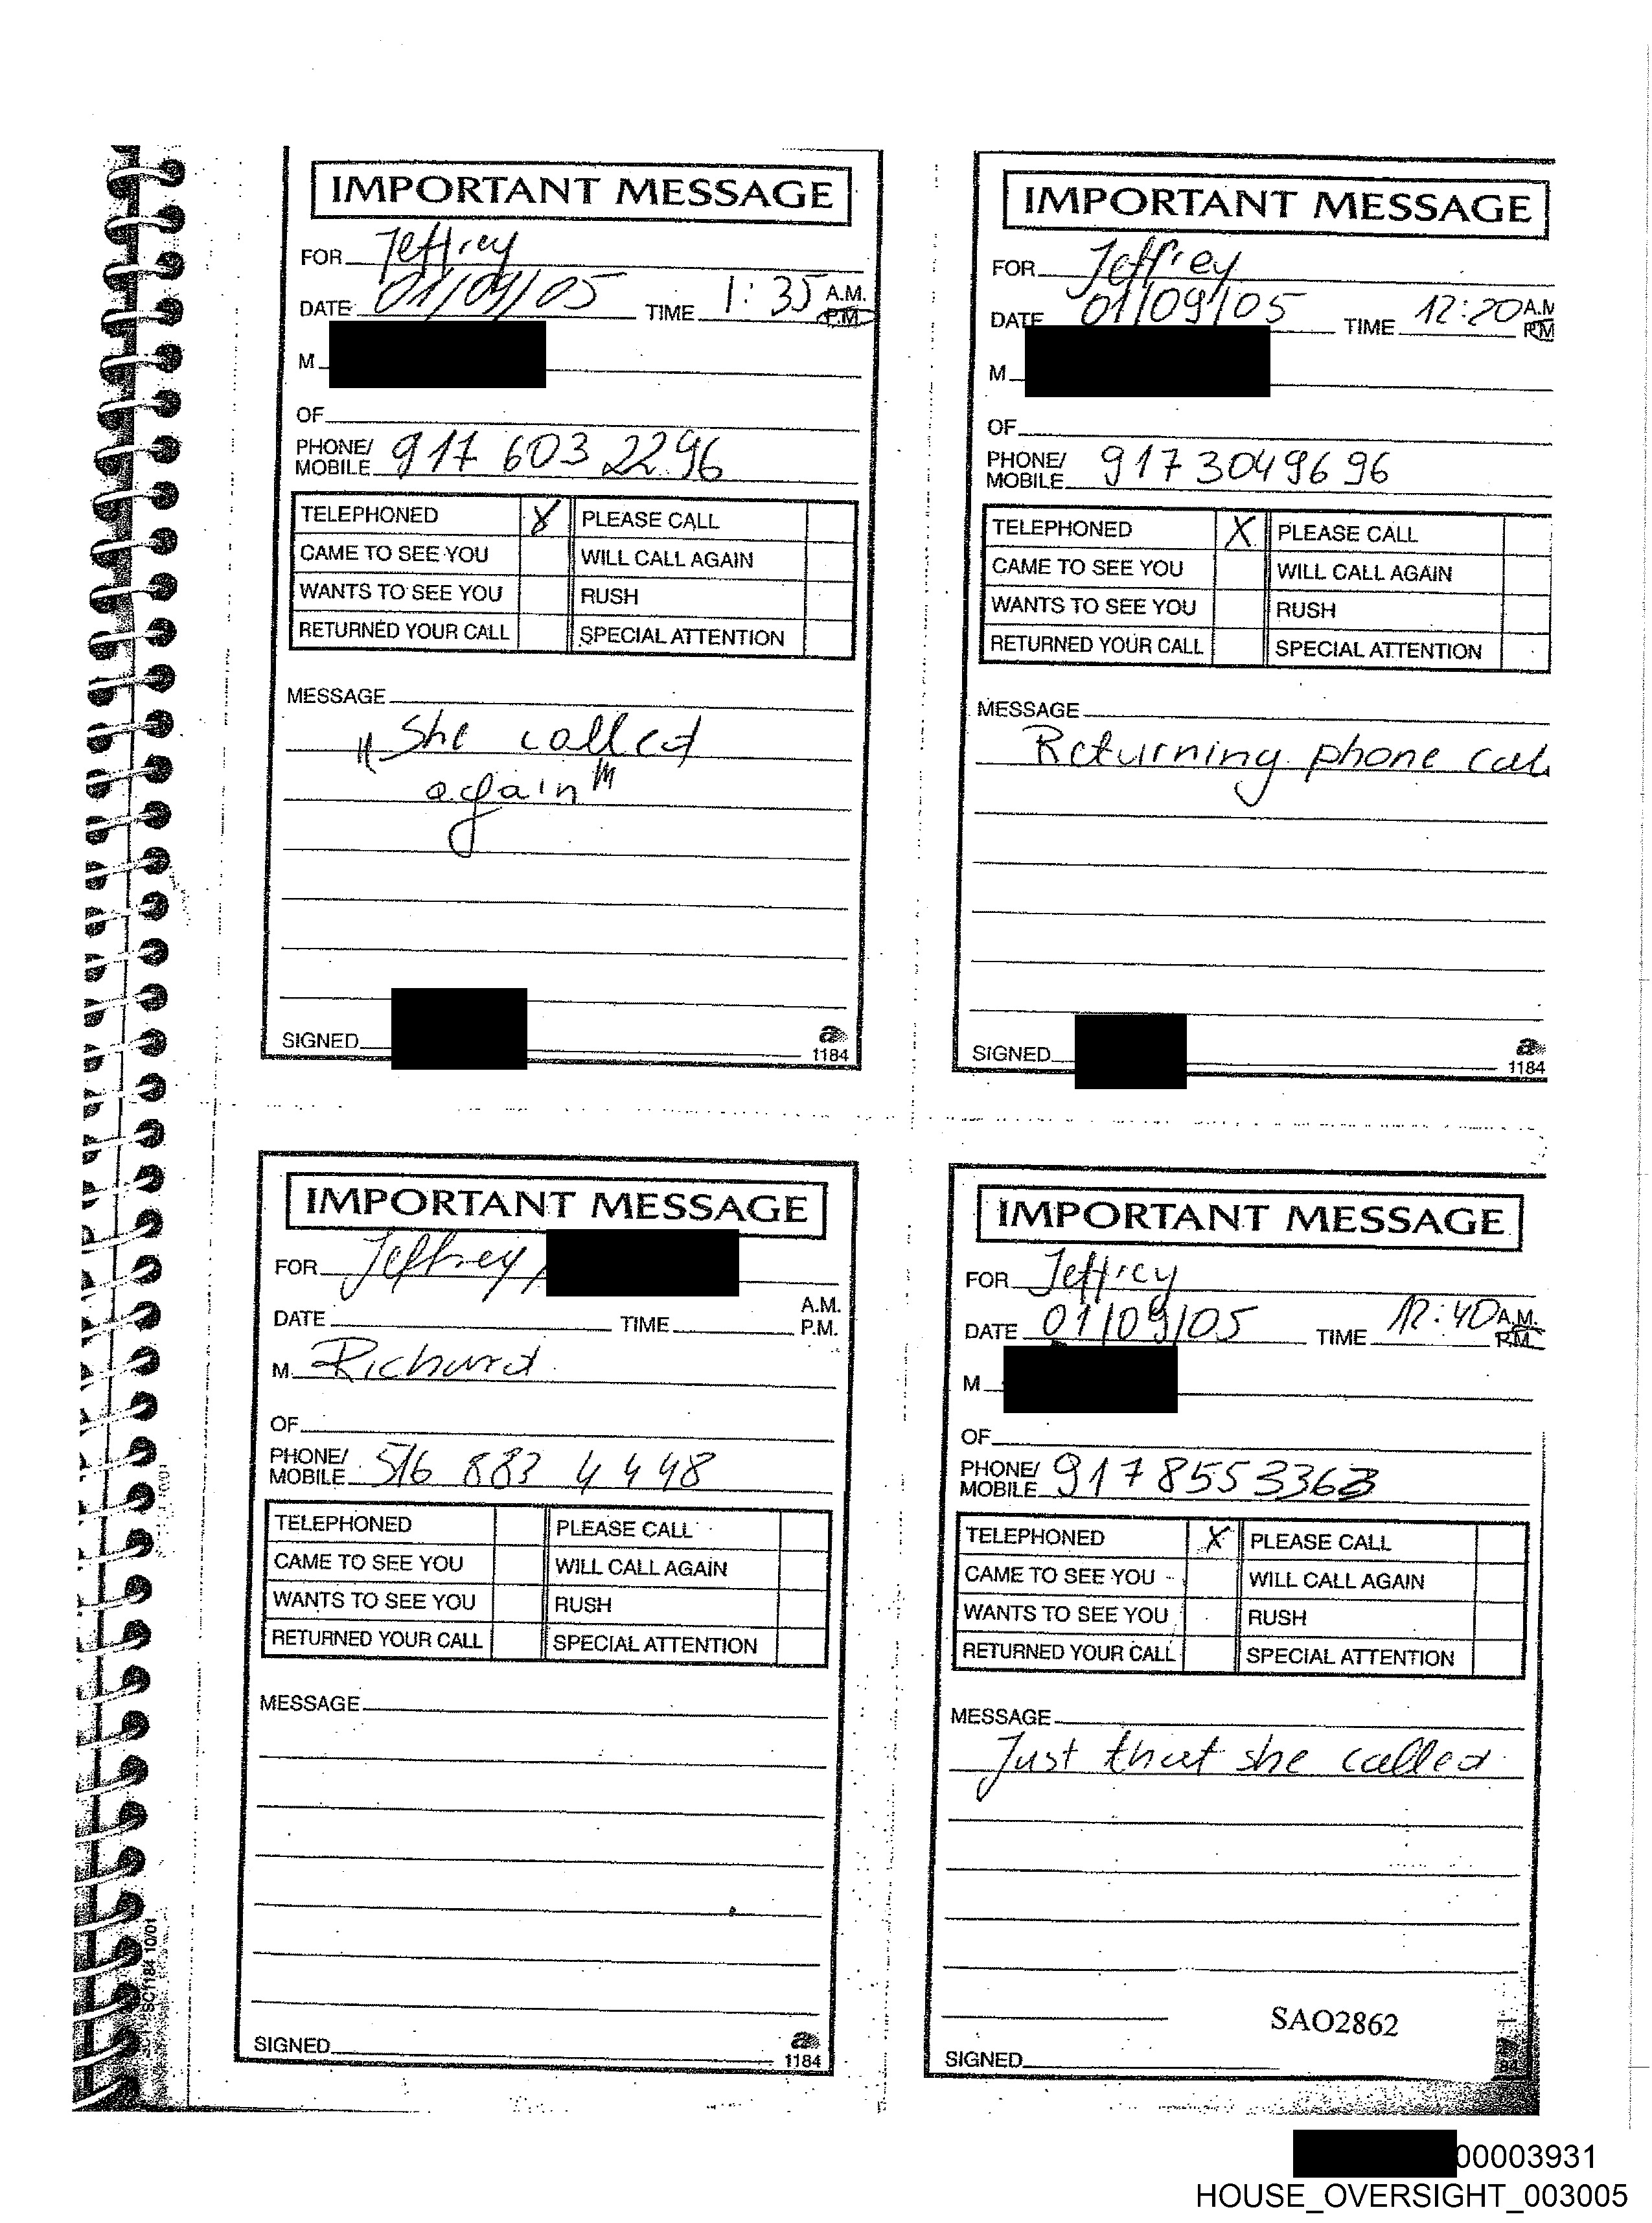 IMPORTANT MESSAGE
FOR Jeffrey
DATE 01/09/05 TIME 1:35 A.M. P.M.
M
OF
PHONE/ MOBILE 917 603 2296
TELEPHONED X PLEASE CALL
CAME TO SEE YOU WILL CALL AGAIN
WANTS TO SEE YOU RUSH
RETURNED YOUR CALL SPECIAL ATTENTION
MESSAGE
"She called
again"
SIGNED
1184
IMPORTANT MESSAGE
FOR Jeffrey
DATE 01/09/05 TIME 12:20 A.M P.M
M
OF
PHONE/ MOBILE 917 304 96 96
TELEPHONED X PLEASE CALL
CAME TO SEE YOU WILL CALL AGAIN
WANTS TO SEE YOU RUSH
RETURNED YOUR CALL SPECIAL ATTENTION
MESSAGE
Returning phone call
SIGNED
1184
IMPORTANT MESSAGE
FOR Jeffrey/
DATE TIME A.M. P.M.
M Richard
OF
PHONE/ MOBILE 516 883 4448
TELEPHONED PLEASE CALL
CAME TO SEE YOU WILL CALL AGAIN
WANTS TO SEE YOU RUSH
RETURNED YOUR CALL SPECIAL ATTENTION
MESSAGE
SIGNED
1184
IMPORTANT MESSAGE
FOR Jeffrey
DATE 01/09/05 TIME 12:40 A.M. P.M.
M
OF
PHONE/ MOBILE 917 855 3363
TELEPHONED X PLEASE CALL
CAME TO SEE YOU WILL CALL AGAIN
WANTS TO SEE YOU RUSH
RETURNED YOUR CALL SPECIAL ATTENTION
MESSAGE
Just that she called
SAO2862
SIGNED
SC1184 10/01
00003931
HOUSE_OVERSIGHT_003005